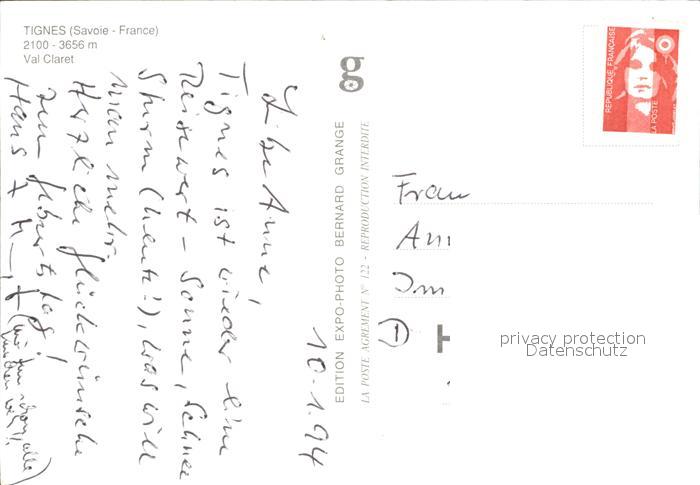 TIGNES (Savoie - France)
2100 - 3656 m
Val Claret
10.1.94
Liebe Anne,
Tignes ist wieder eine
Reise wert - Sonne, Schnee
Sturm (heute!), was will
man mehr.
Herzliche Glückwünsche
zum Geburtstag!
Hans
g
EDITION EXPO-PHOTO BERNARD GRANGE
LA POSTE AGREMENT N° 122 - REPRODUCTION INTERDITE
REPUBLIQUE FRANÇAISE
LA POSTE
Frau
An
Im
H
privacy protection
Datenschutz